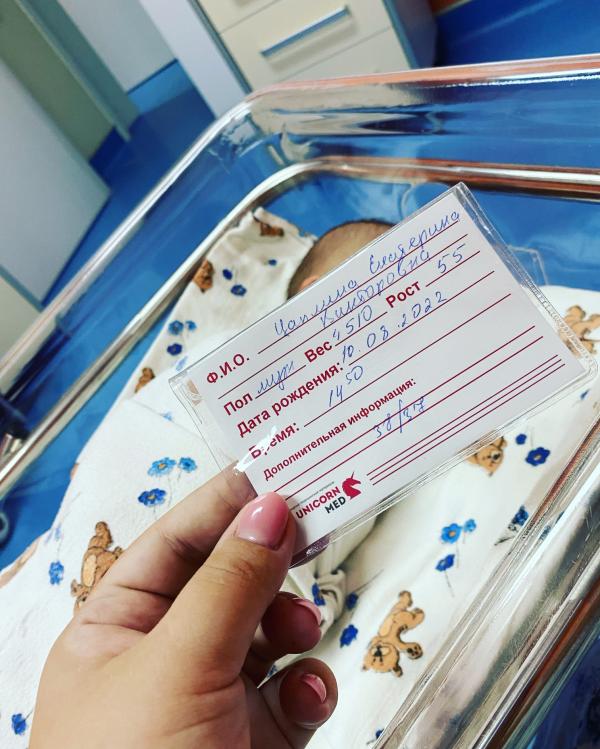 Ф.И.О. Цаплина Екатерина
Викторовна
Пол муж Вес 4510 Рост 55
Дата рождения: 10.08.2022
Время: 14 50
Дополнительная информация:
38/37
UNICORN
MED